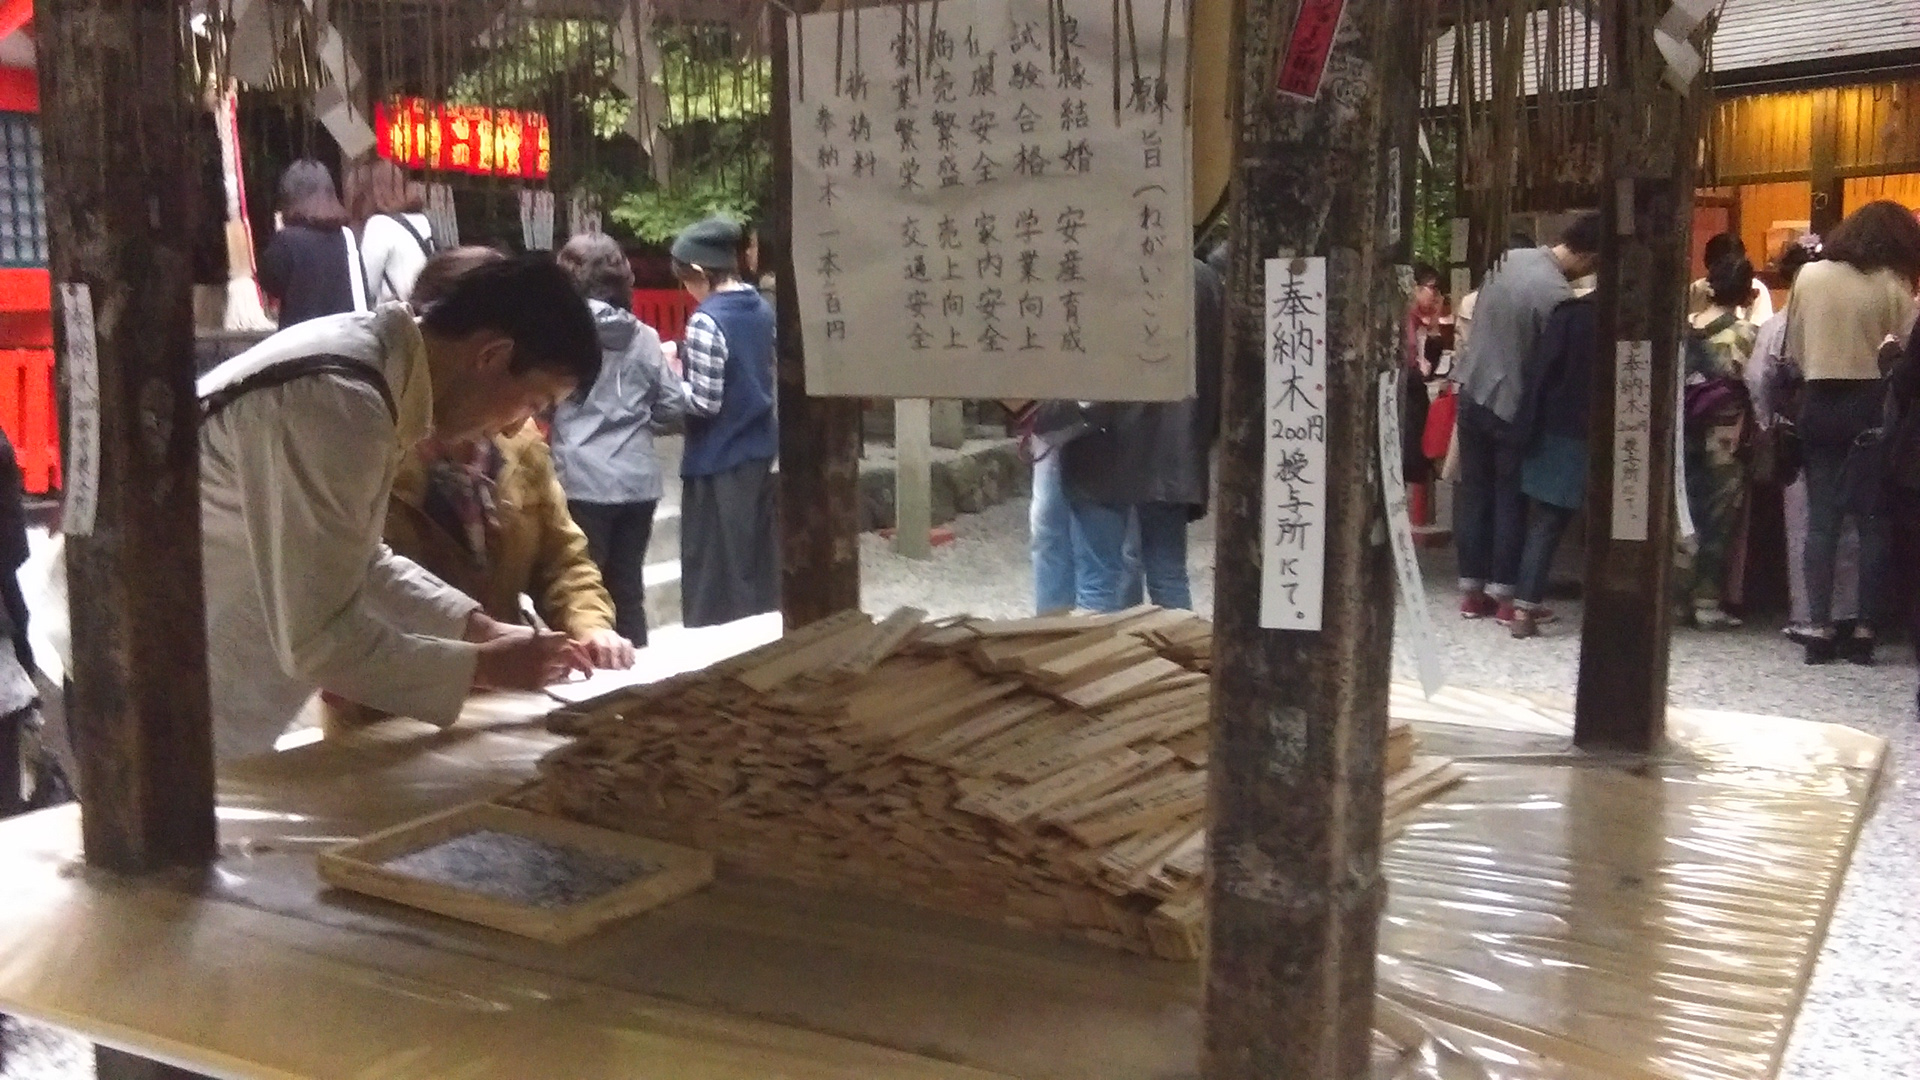 願旨(ねがいごと)
良縁結婚 安産育成
試験合格 学業向上
健康安全 家内安全
商売繁盛 売上向上
営業繁栄 交通安全
祈祷料
奉納木 一本二百円
奉納木200円授与所にて。
奉納木200円授与所にて。